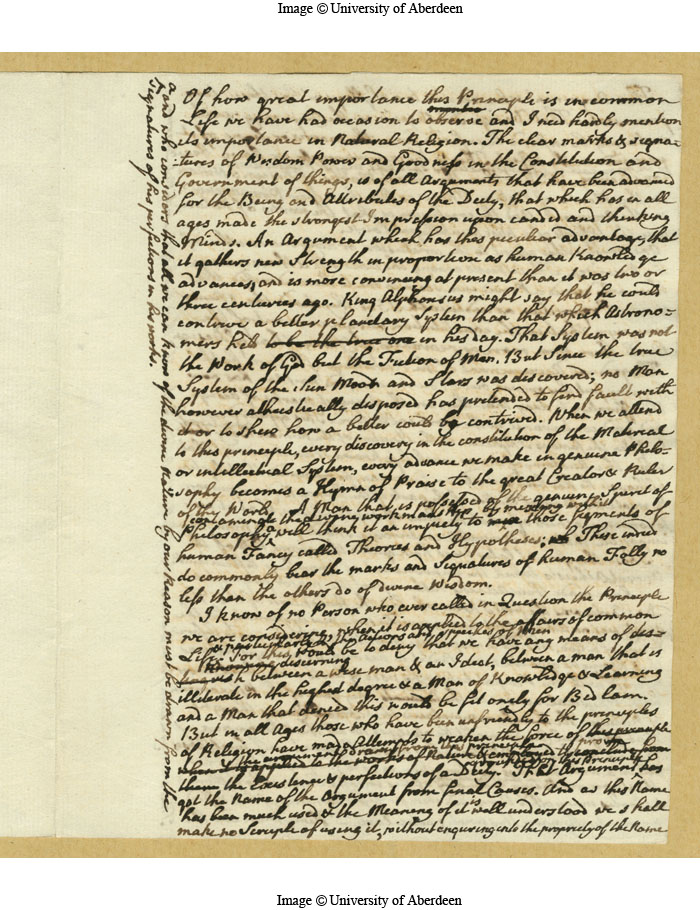 Image © University of Aberdeen
Of how great importance this Principle is in common
Life we have had occasion to observe and I need hardly mention
its importance in Natural Religion. The clear marks & signa-
tures of Wisdom Power and Goodness in the Constitution and
Government of things, is of all Arguments that have been advanced
for the Being and Attributes of the Deity, that which has in all
ages made the strongest Impression upon candid and thinking
Minds. An Argument which has this peculiar advantage, that
it gathers new Strength in proportion as human Knowledge
advances, and is more convincing at present than it was two or
three centuries ago. King Alphonsus might say that he could
contrive a better planetary System than that which Astrono-
mers held to be the true one in his day. That System was not
the Work of God but the Fiction of Men. But since the true
System of the Sun Moon and Stars was discovered; no Man
however atheistically disposed has pretended to find fault with
it or to shew how a better could be contrived. When we attend
to this principle, every discovery in the constitution of the Material
or intellectual System, every advance we make in genuine Philo-
sophy becomes a Hymn of Praise to the great Creator & Ruler
of the World. A Man that is possessed of the genuine Spirit of
Philosophy will think it an impiety to
contaminate the divine workmanship, by mixing with it
those figments of
human Fancy called Theories and Hypotheses; These indeed
do commonly bear the marks and Signatures of human Folly no
less than the others do of divine Wisdom.
I know of no Person who ever called in Question the Principle
we are considering, when it is applied to the affairs of common
Life
& particularly to the actions and speeches of Men
For this would be to deny that we have any means of dis-
discerning
between a wise man & an Ideot, between a man that is
illiterate in the highest degree & a Man of Knowledge & Learning
and a Man that denied this would be fit onely for Bedlam.
But in all Ages those who have been unfriendly to the principles
of Religion have made Attempts to weaken the force of
the argument drawn from this principle
the Existence & perfections of a Deity. That Argument has
got the Name of the Argument from final Causes. And as this Name
has been much used & the Meaning of it is well understood we shall
make no Scruple of using it, without enquiring into the propriety of the Name
a and who considers that all we can know of the divine Nature by our Reason must be drawn from the
Signatures of his perfections in his works.
Image © University of Aberdeen